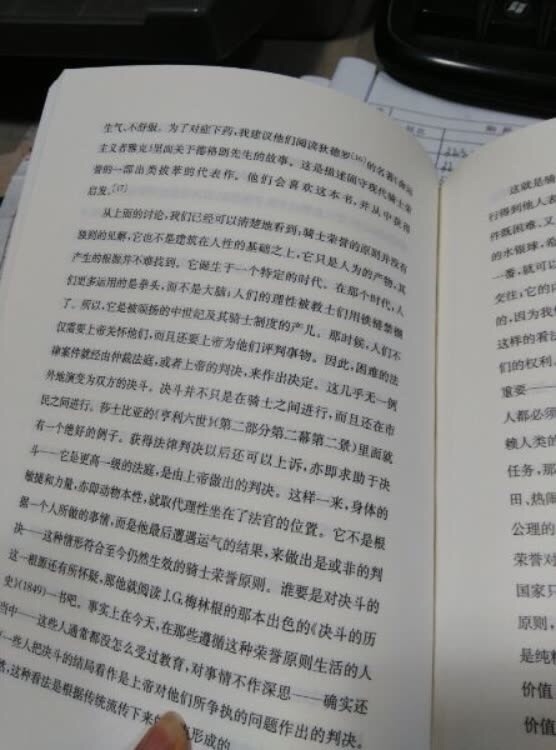 生气、不舒服。为了对症下药,我建议他们阅读狄德罗〔16〕的名著《命运
主义者雅克》里面关于德格朗先生的故事。这是描述固守现代骑士荣
誉的一部出类拔萃的代表作。他们会喜欢这本书,并从中获得
启发。〔17〕
从上面的讨论,我们已经可以清楚地看到,骑士荣誉的原则并没有
独到的见解,它也不是建筑在人性的基础之上,它只是人为的产物,其
产生的根源并不难找到。它诞生于一个特定的时代。在那个时代,人
们更多运用的是拳头,而不是大脑;人们的理性被教士们用铁链禁锢
了。所以,它是被颂扬的中世纪及其骑士制度的产儿。那时候,人们不
仅需要上帝关怀他们,而且还要上帝为他们评判事物。因此,困难的法
律案件就经由仲裁法庭,或者上帝的判决,来作出决定。这几乎无一例
外地演变为双方的决斗。决斗并不只是在骑士之间进行,而且还在市
民之间进行。莎士比亚的《亨利六世》(第二部分第二幕第二景)里面就
有一个绝好的例子。获得法律判决以后还可以上诉,亦即求助于决
斗——它是更高一级的法庭,是由上帝做出的判决。这样一来,身体的
敏捷和力量,亦即动物本性,就取代理性坐在了法官的位置。它不是根
据一个人所做的事情,而是他最后遭遇运气的结果,来做出是或非的判
决——这种情形符合至今仍然生效的骑士荣誉原则。谁要是对决斗的
这一根源还有所怀疑,那他就阅读J.G.梅林根的那本出色的《决斗的历
史》(1849)一书吧。事实上在今天,在那些遵循这种荣誉原则生活的人
当中——这些人通常都没怎么受过教育,对事情不作深思——确实还
一些人把决斗的结局看作是上帝对他们所争执的问题作出的判决。
然,这种看法是根据传统流传下来的 形成的
这就是骑
行得到他人表
作既困难、又
的水银球,希
一番,就可以
交往;它的
的,因为我
这样的看法
们的权利。
重要——
人都必须
赖人类的
任务,那
田、热衷
公理的
荣誉对
国家只
原则,
是纯粹
价值
价值